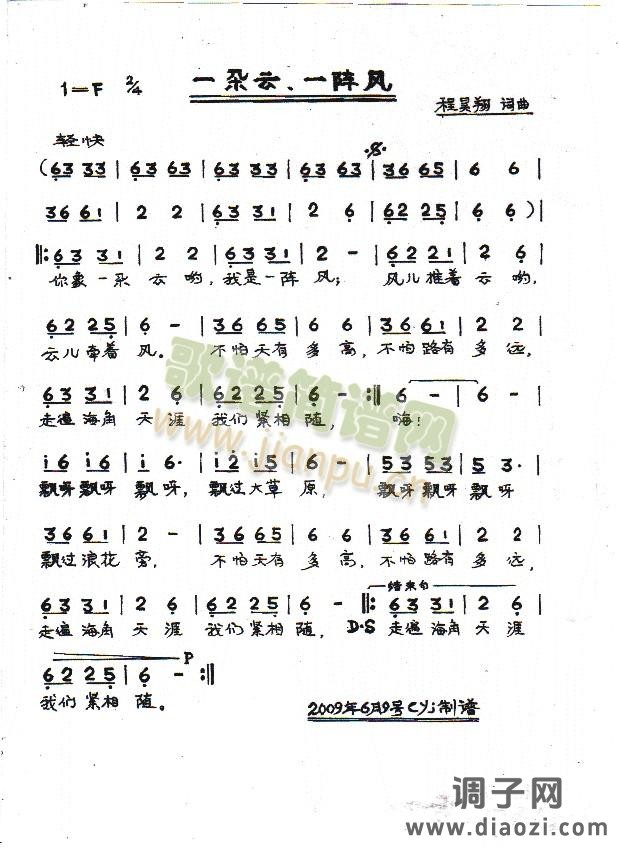 一朵云、一阵风
1=F 2/4
程昊翔 词曲
轻快
(63 33 | 63 63 | 63 33 | 63 63 | 36 65 | 6 6 |
36 61 | 2 2 | 63 31 | 2 6 | 62 25 | 6 6 ) |
‖: 63 31 | 2 2 | 63 31 | 2 - | 62 21 | 2 6 |
你象一朵云哟,我是一阵风; 风儿推着云哟,
62 25 | 6 - | 36 65 | 6 6 | 36 61 | 2 2 |
云儿牵着风。 不怕天有多高,不怕路有多远,
63 31 | 2 6 | 62 25 | 6 - :‖ 6 - | 6 - |
走遍海角天涯我们紧相随, 嗨!
i6 i6 | i 6· | i2 i5 | 6 - | 53 53 | 5 3· |
飘呀飘呀飘呀,飘过大草原,飘呀飘呀飘呀
36 61 | 2 - | 36 65 | 6 6 | 36 61 | 2 2 |
飘过浪花旁, 不怕天有多高,不怕路有多远,
结束句
63 31 | 2 6 | 62 25 | 6 - ‖: 63 31 | 2 6 |
走遍海角天涯我们紧相随, D·S 走遍海角天涯
P
62 25 | 6 - :‖
我们紧相随。
2009年6月9号cyj制谱
歌谱简谱网
www.jianpu.cn
调子网
www.diaozi.com